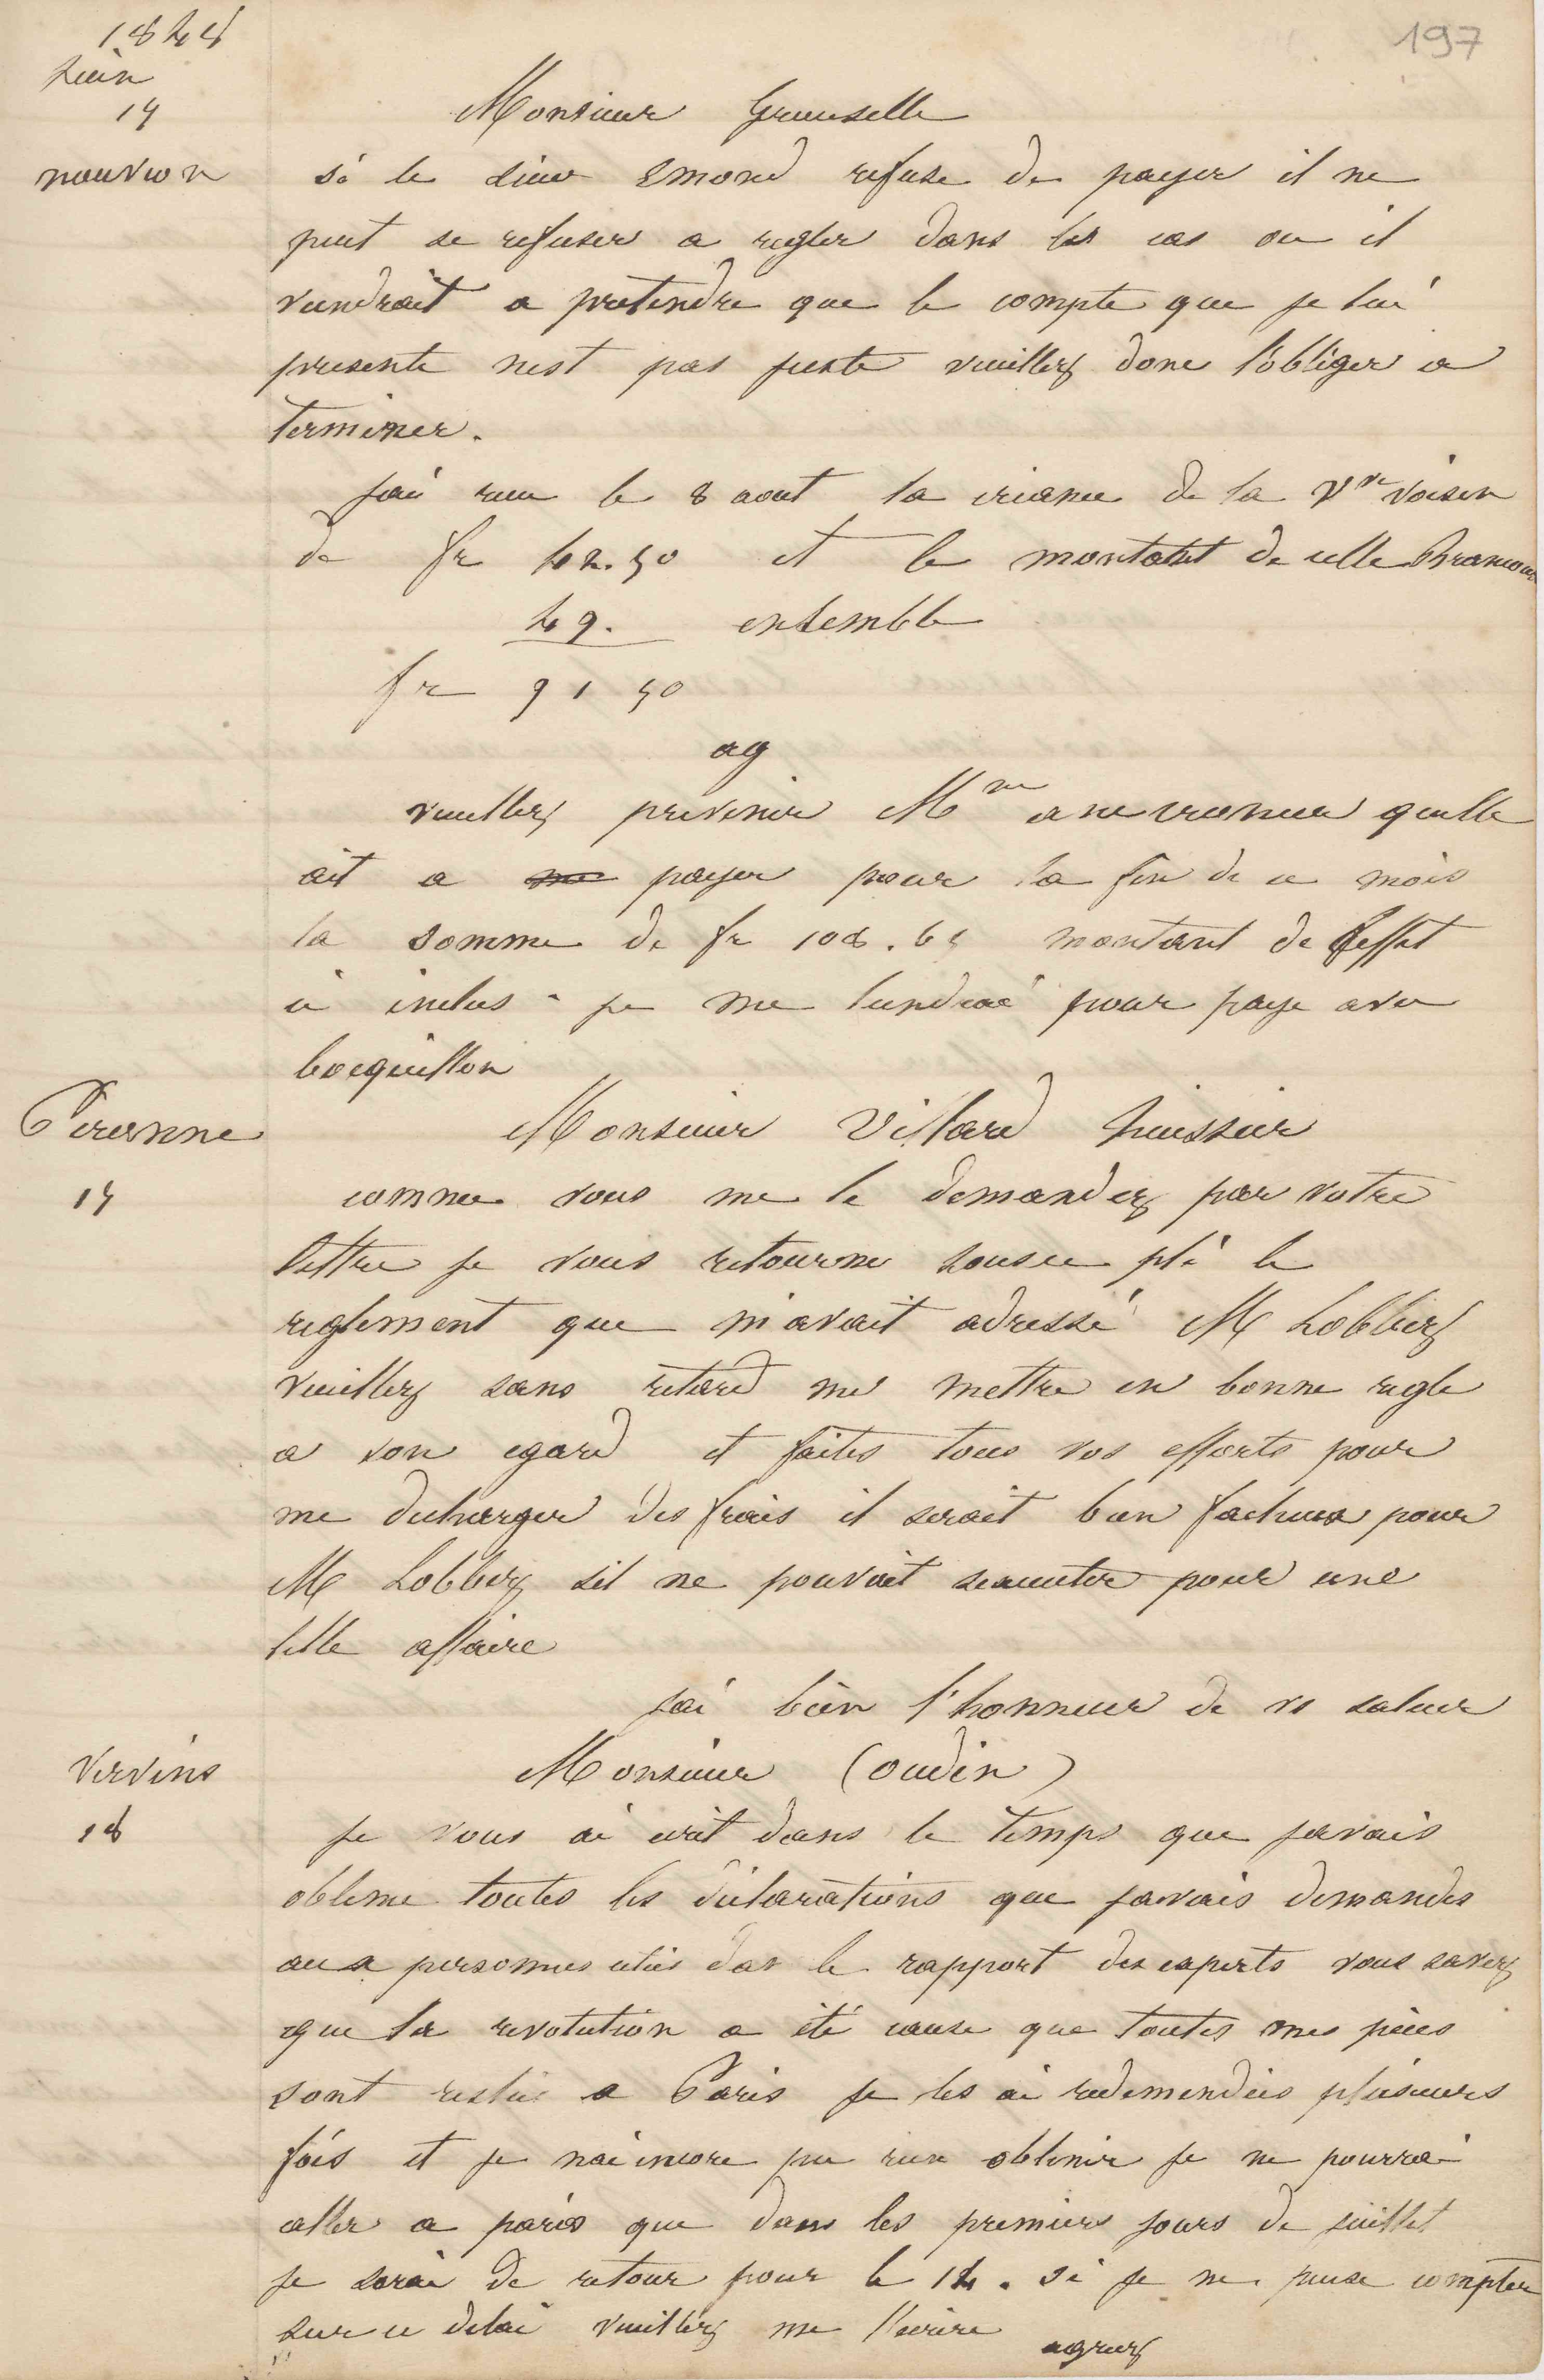 197
1848
Juin
15
nouvion
Monsieur Gruuselle
si le sieur Emond refuse de payer il ne
peut se refuser a regler dans les cas ou il
viendrait a pretendre que le compte que je lui
presente nest pas juste veuillez donc l'obliger a
terminer.
jai recu le 8 aout la créance de la Vve Voisin
de fr 42.50 et le montatnt de celle Brancour
49. ensemble
fr 91 50
ag
veuillez prevenir Mme quelle
ait a payer pour la fin de ce mois
la somme de fr 108.65 montant de leffet
ci inclus - je me tiendrai pour payé avec
bocquillon
Peronne
Monsieur Villard huissier
15
comme vous me le demandez par votre
lettre je vous retourne sousce pli le
reglement que m'avait adressé M Lobbiez
veuillez sans retard me mettre en bonne regle
a son egard et faites tous vos efforts pour
me decharger des frais il serait bien facheux pour
M Lobbiez sil ne pouvait sacuiter pour une
telle affaire
jai bien l'honneur de vs saluer
Vervins
Monsieur (oudin)
18
je vous ai ecrit dans le temps que javais
obtenue toutes les déclarations que javais demandés
aux personnes citeés dan le rapport des experts vous savez
que la revolution a été cause que toutes mes pièces
sont restés a Paris je les ai redemendées plusieures
fois et je nai encore pu rien obtenir je ne pourrai
aller a paris que dans les premiers jours de juillet
je serai de retour pour le 14. si je ne puise compter
sur ce delai veuillez me l'ecrire
agreez